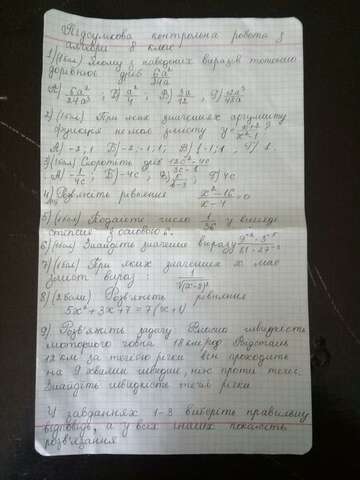 Підсумкова контрольна робота з
алгебри 8 клас
1) (1бал) Якому з наведених виразів тотожно
дорівнює дріб 6a²/24a
А) 6a²/24a³; Б) a²/4; В) 3a/12; Г) 12a³/48a
2) (1бал) При яких значеннях аргументу
функція не має змісту y=
А) -2; 1 Б) -2; -1; 1; В) -1; 1 Г) 1.
3) (1бал) Скоротіть дріб
А. -1/4c; Б) -4c Г) 4c
4) Розв'яжіть рівняння x²-16/x-4=0
5) (1бал) Подайте число 1/36 у вигляді
степеня з основою 6.
6) (1бал) Знайдіть значення виразу
7) (1бал) При яких значеннях x має
зміст вираз:
8) (2бали) Розв'яжіть рівняння
5x²+3x+7=7(x+1)
9) Розв'яжіть задачу Власна швидкість
моторного човна 18 км/год Відстань
12 км за течією річки він проходить
на 9 хвилин швидше, ніж проти течії.
Знайдіть швидкість течії річки
У завданнях 1-3 виберіть правильну
відповідь, а у всіх інших покажіть
розв'язання